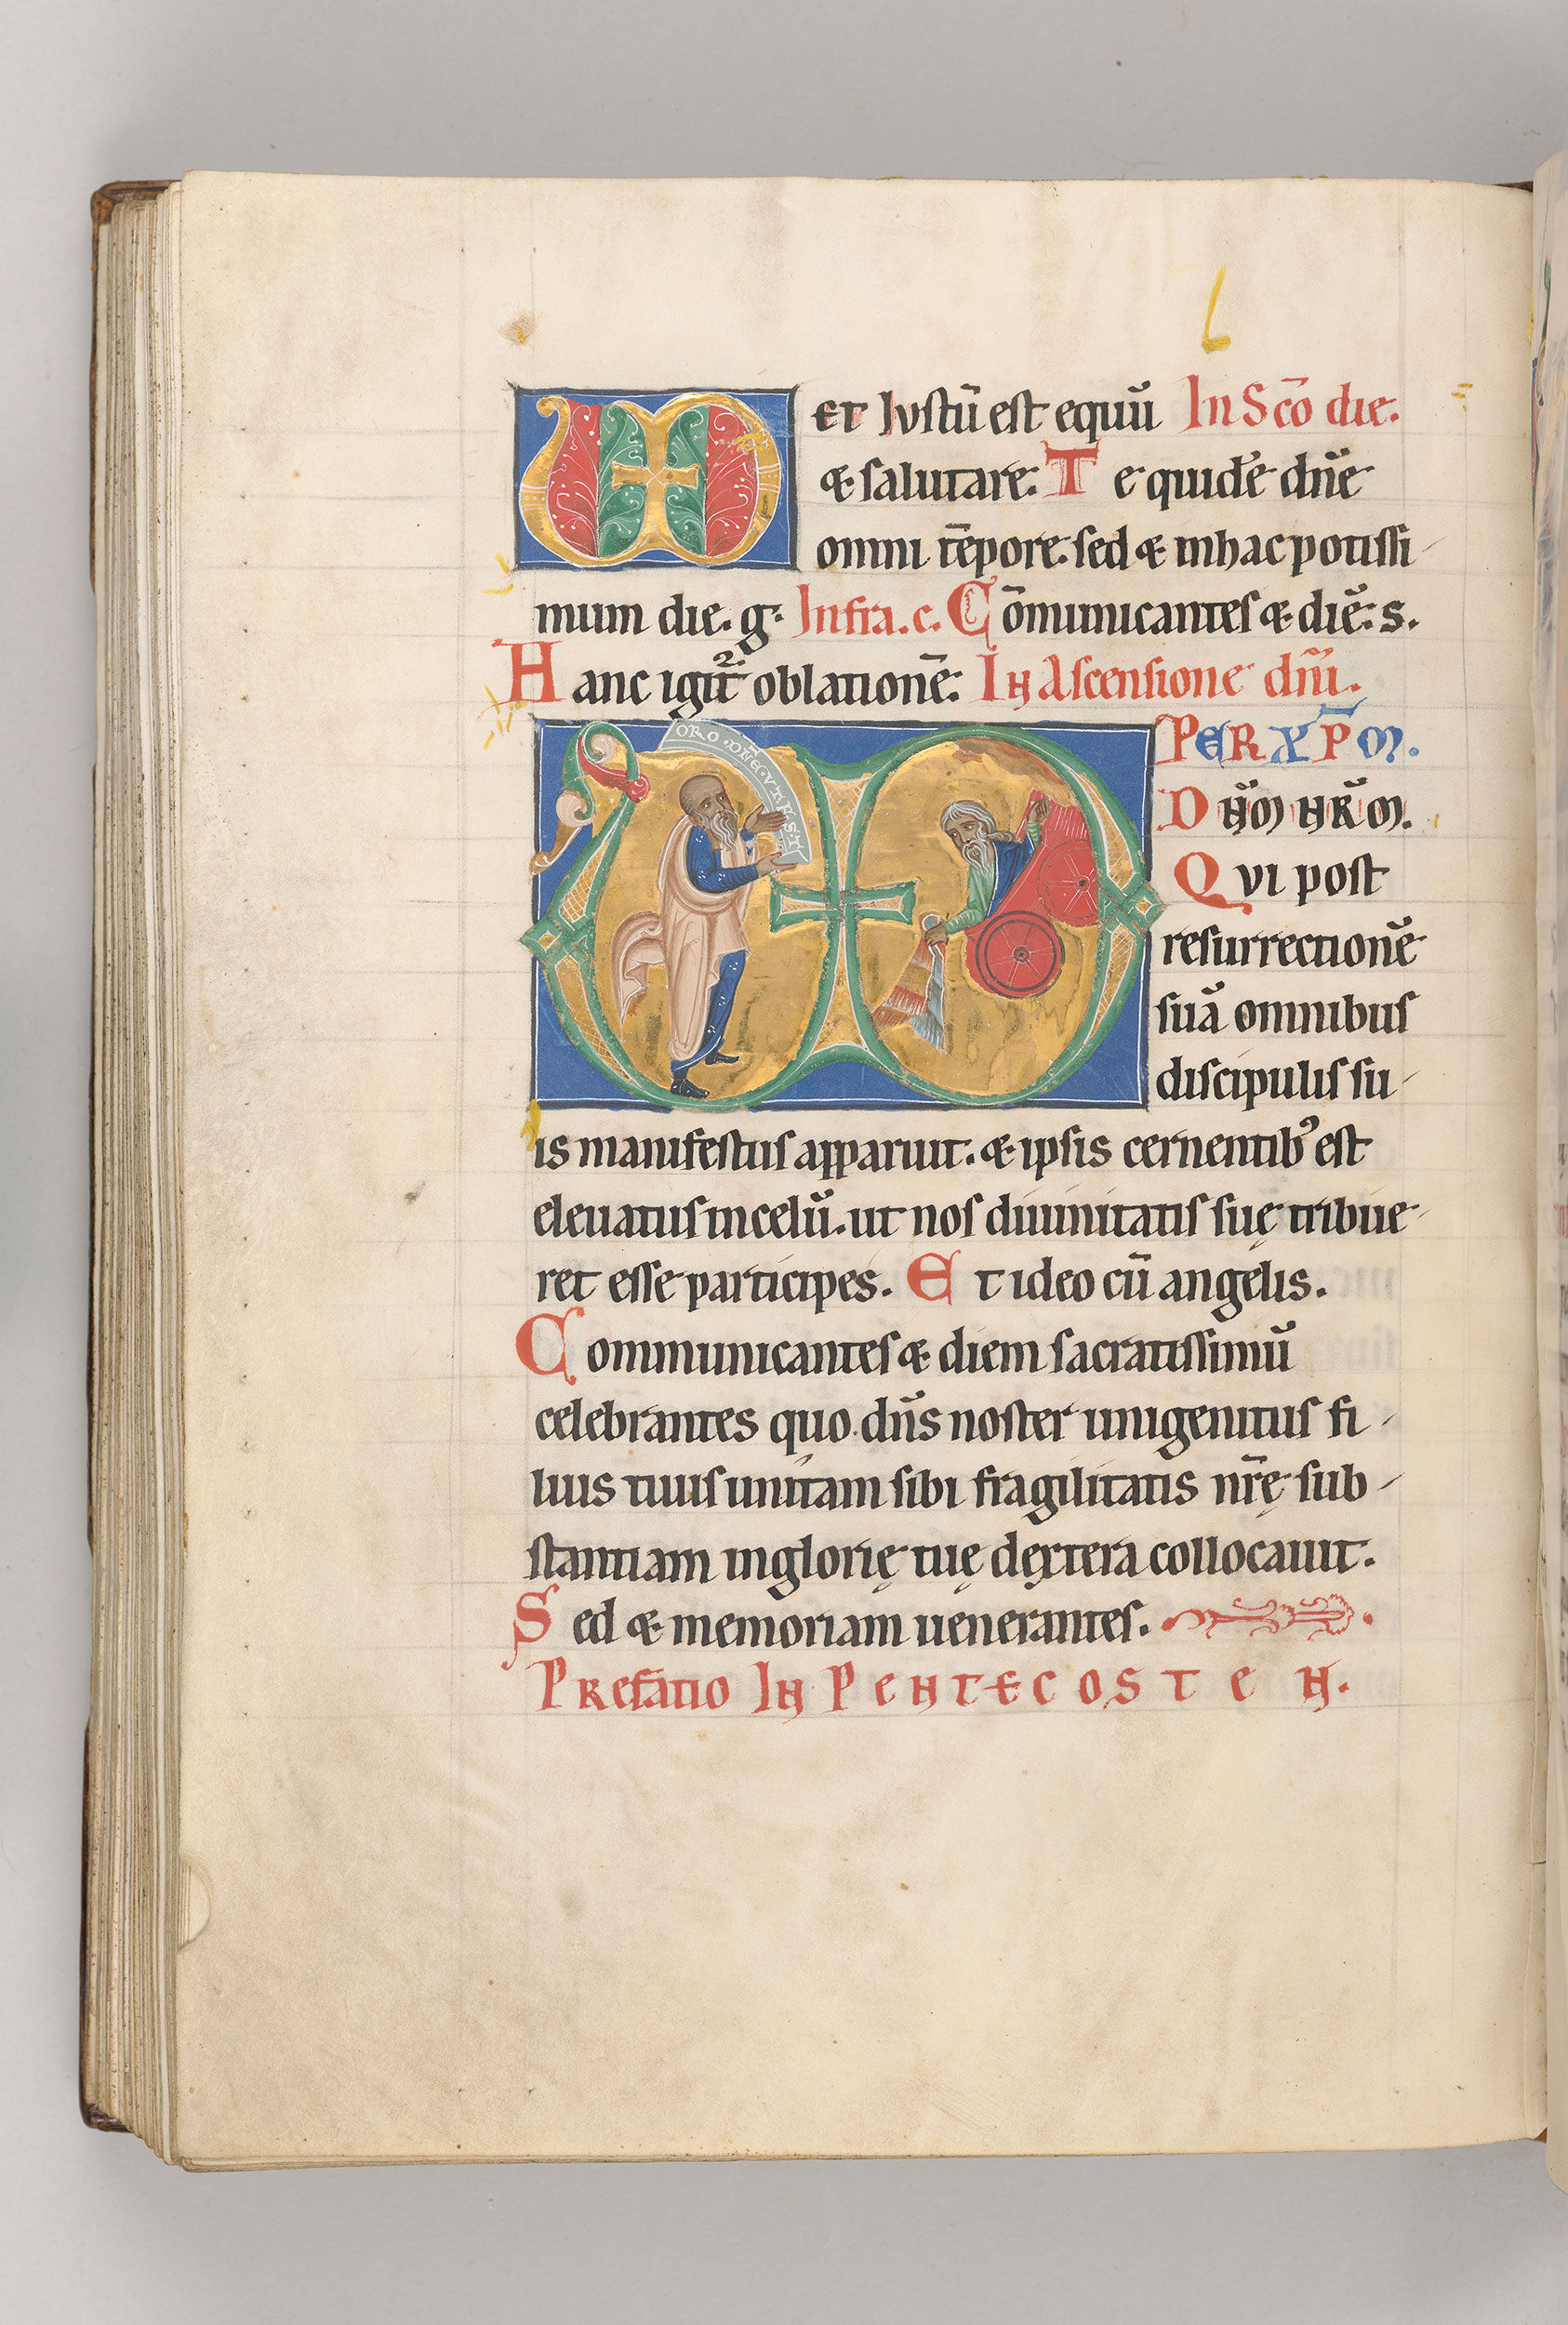 et Iustū est equū In Sc̄o die.
& salutare: Te quidē dn̄e
omni tēpore. sed & inhac potissi-
mum die. g. Infra. c. Cōmunicantes & diē: s.
Hanc igit̄ oblationē: In Ascensione dn̄i.
ORO. DN̄E. VT
PER XP̄M.
DN̄M NR̄M.
Qui post
resurrectionē
suā omnibus
discipulis su-
is manifestus apparuit. & ipsis cernentib' est
eleuatus incelū. ut nos diuinitatis suę tribue-
ret esse participes. Et ideo cū angelis.
Communicantes & diem sacratissimū
celebrantes quo dn̄s noster unigenitus fi-
lius tuus unitam sibi fragilitatis nr̄ę sub-
stantiam inglorię tuę dextera collocauit.
Sed & memoriam uenerantes.
Prefātio In Pentecosten.